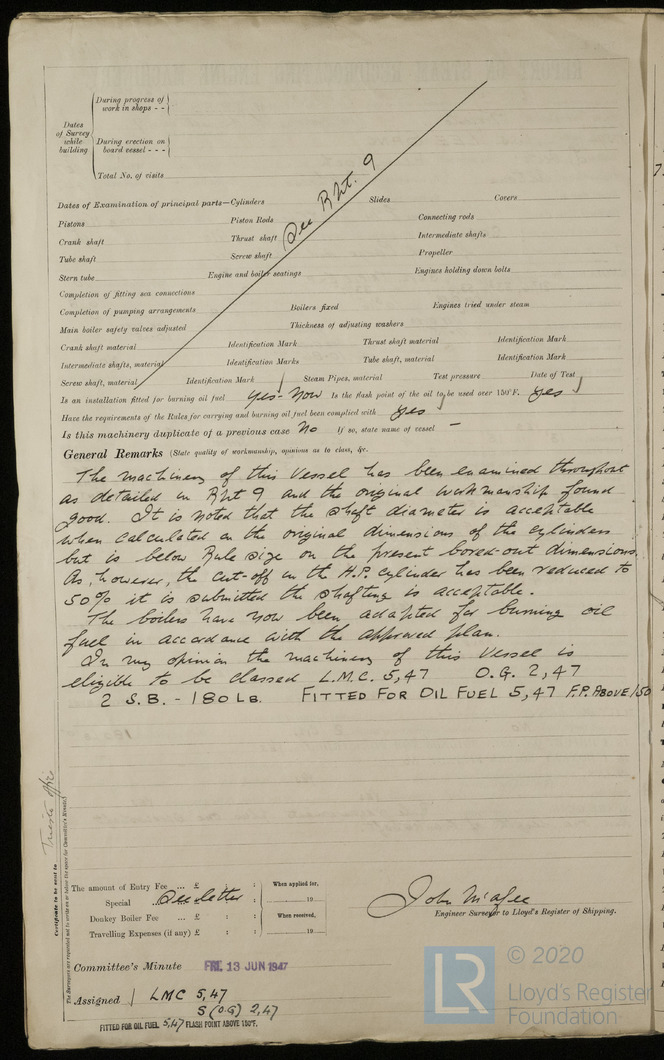 During progress of work in shops - -
Dates of Survey while building
During erection on board vessel - - -
Total No. of visits
See Rpt. 9
Dates of Examination of principal parts—Cylinders Slides Covers
Pistons Piston Rods Connecting rods
Crank shaft Thrust shaft Intermediate shafts
Tube shaft Screw shaft Propeller
Stern tube Engine and boiler seatings Engines holding down bolts
Completion of fitting sea connections
Completion of pumping arrangements Boilers fixed Engines tried under steam
Main boiler safety valves adjusted Thickness of adjusting washers
Crank shaft material Identification Mark Thrust shaft material Identification Mark
Intermediate shafts, material Identification Marks Tube shaft, material Identification Mark
Screw shaft, material Identification Mark Steam Pipes, material Test pressure Date of Test
Is an installation fitted for burning oil fuel Yes - Now Is the flash point of the oil to be used over 150°F. Yes
Have the requirements of the Rules for carrying and burning oil fuel been complied with Yes
Is this machinery duplicate of a previous case No If so, state name of vessel —
General Remarks (State quality of workmanship, opinions as to class, &c.
The machinery of this Vessel has been examined throughout
as detailed in Rpt 9 and the original workmanship found
good. It is noted that the shaft diameter is acceptable
when calculated on the original dimensions of the cylinders
but is below Rule size on the present bored-out dimensions.
As, however, the cut-off in the H.P. cylinder has been reduced to
50% it is submitted the shafting is acceptable.
The boilers have now been adapted for burning oil
fuel in accordance with the approved plan.
In my opinion the machinery of this Vessel is
eligible to be classed L.M.C. 5,47 O.G. 2,47
2 S.B. - 180 LB. FITTED FOR OIL FUEL 5,47 F.P. ABOVE 150
Certificate to be sent to Trieste office
The amount of Entry Fee ... £ : : When applied for,
Special ... See letter : 19
Donkey Boiler Fee ... £ : : When received,
Travelling Expenses (if any) £ : : 19
John McAfee
Engineer Surveyor to Lloyd's Register of Shipping.
Committee's Minute FRI. 13 JUN 1947
Assigned LMC 5,47
S (OG) 2,47
FITTED FOR OIL FUEL 5,47 FLASH POINT ABOVE 150°F.
LR
© 2020
Lloyd's Register
Foundation